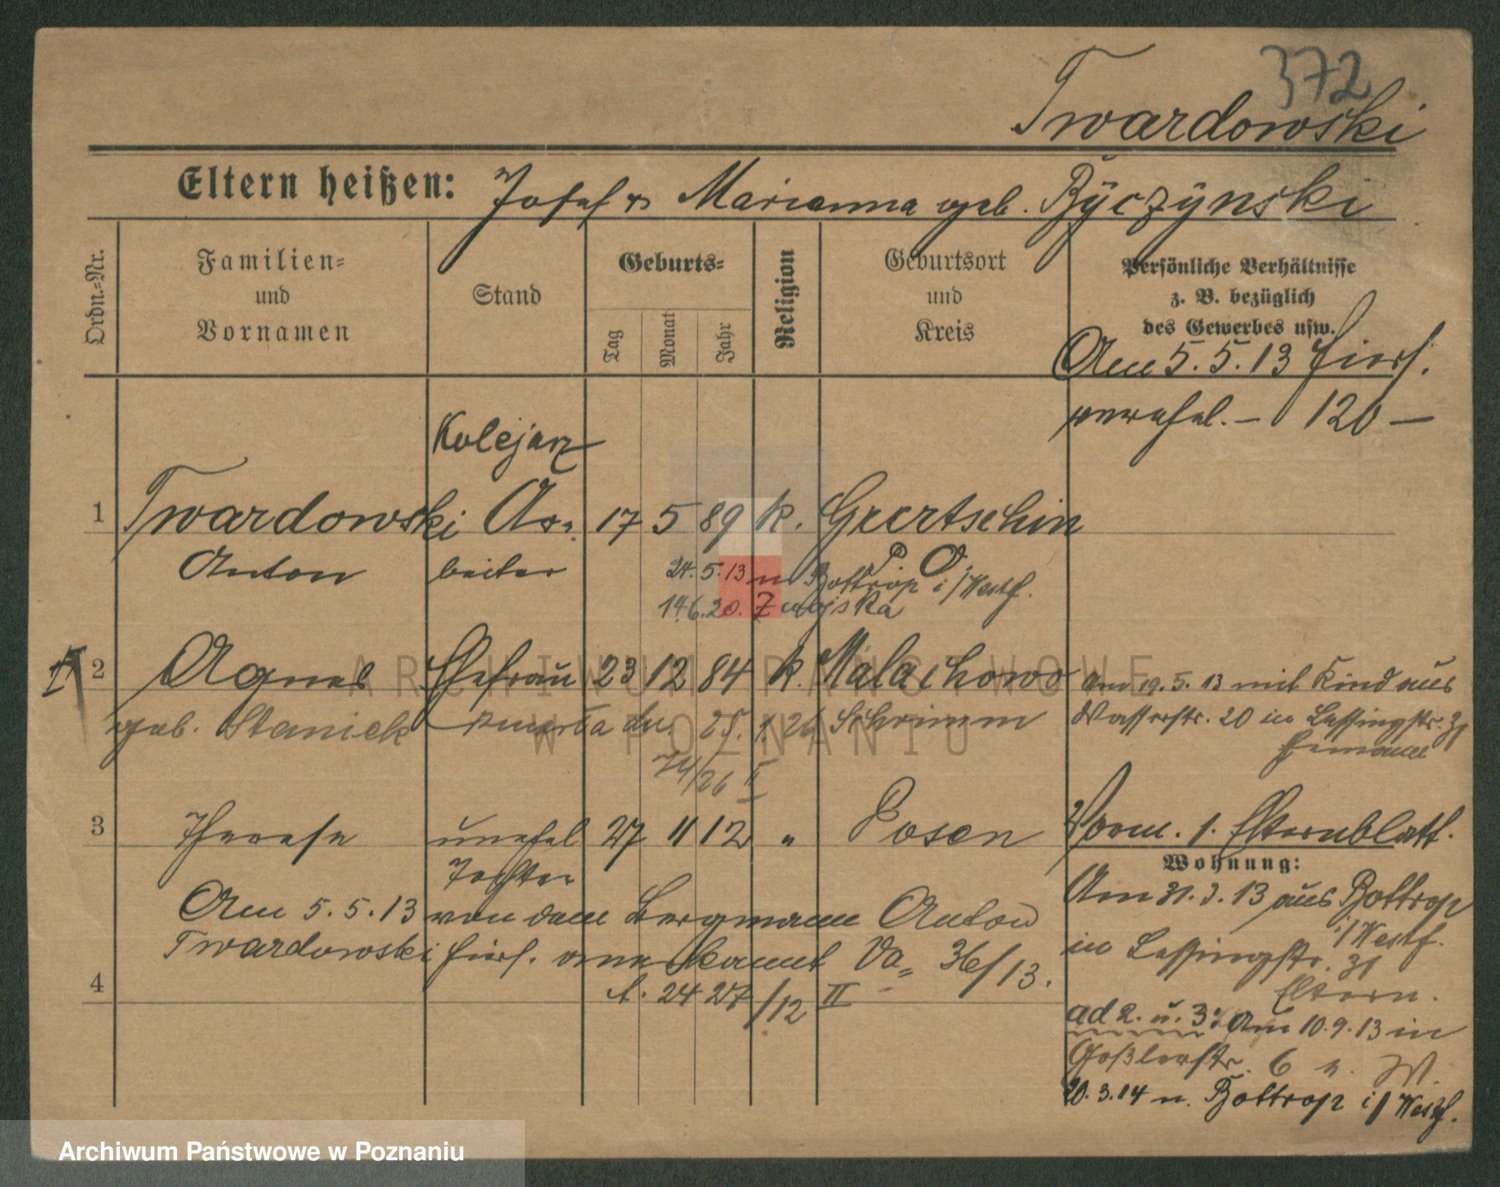 372
Twardowski
Eltern heißen: Josef u Marianna geb. Byczynski
Ordn.-Nr.
Familien-
und
Vornamen
Stand
Geburts-
Tag
Monat
Jahr
Religion
Geburtsort
und
Kreis
Persönliche Verhältnisse
z. B. bezüglich
des Gewerbes usw.
Am 5.5.13 hier
120 —
Kolejarz
1 Twardowski Ar- 17 5 89 k. Gurtschin
Anton beiter P. O.
24.5.13 n Bottrop i/Westf.
14.6.20.
2 Agnes Ehefrau 23 12 84 k. Malachowo
geb. Staniek zmarła dn. 25. 1 26 Schrimm
74/26 II
Am 19.5.13 mit Kind aus
Wasserstr. 20 in Lessingstr. 31
3 Therese unehel 27 11 12 " Posen
Tochter
Vorm. s. Elternblatt.
Wohnung:
Am 5.5.13 von dem Bergmann Anton
Twardowski hier anerkannt Va 36/13.
4
24 27/12 II
Am 31.3.13 aus Bottrop
i/Westf.
in Lessingstr. 31
Eltern.
ad 2. u. 3: Am 10.9.13 in
Goßlerstr. 6 n. W.
20.3.14 n. Bottrop i/Westf.
ARCHIWUM PAŃSTWOWE
W POZNANIU
Archiwum Państwowe w Poznaniu